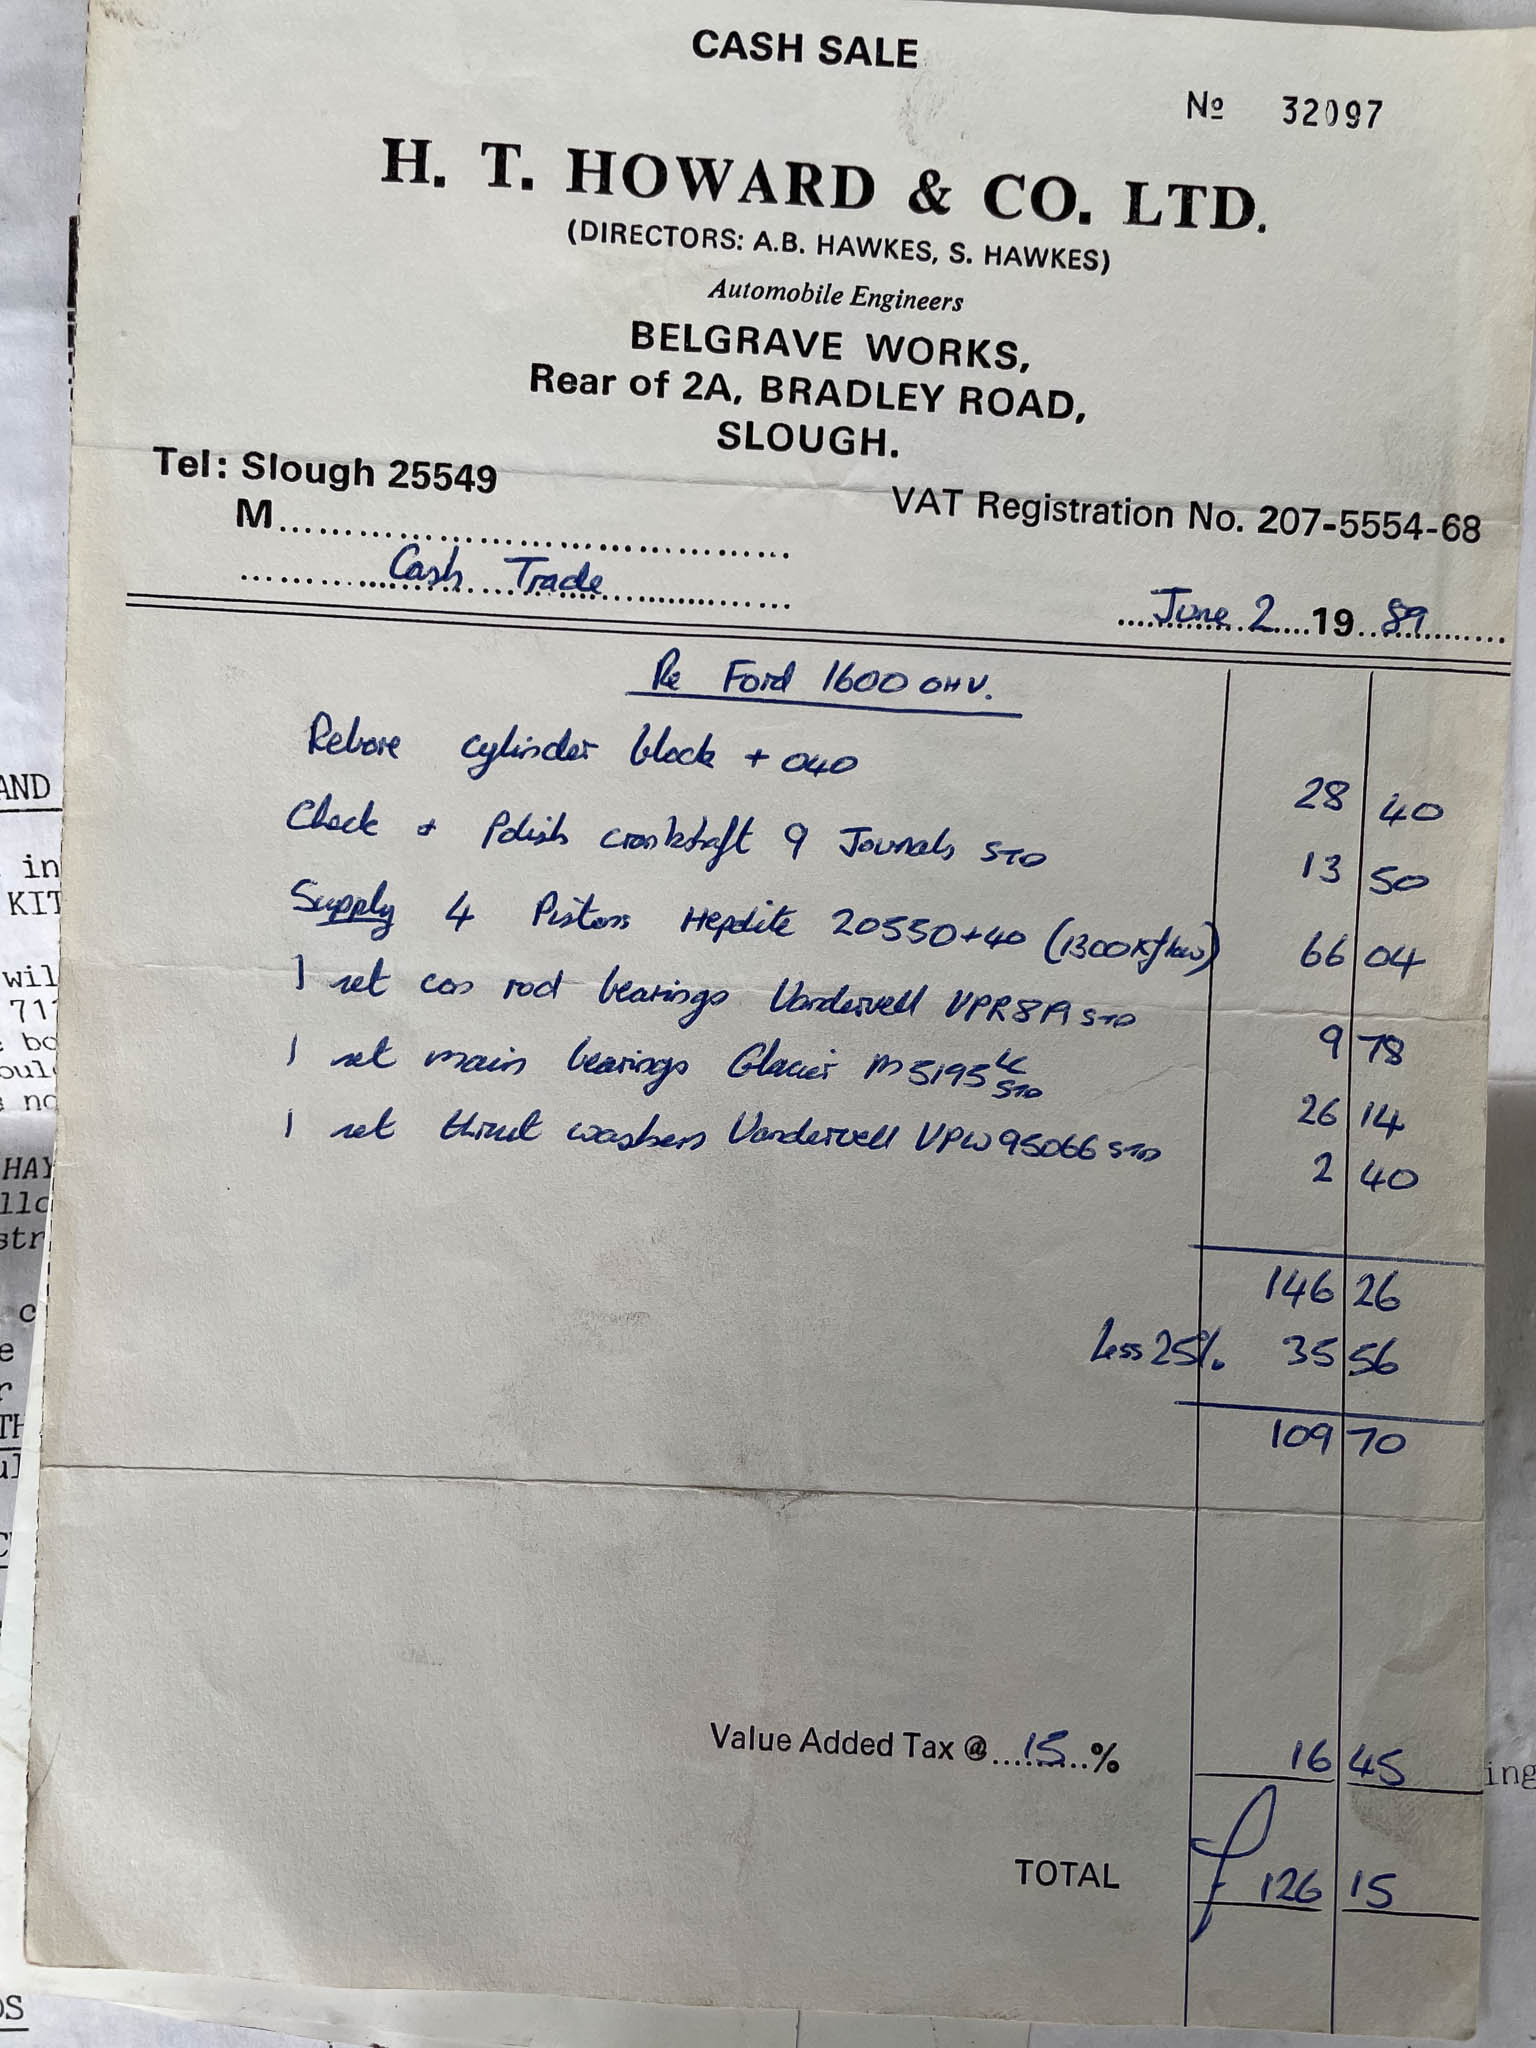 CASH SALE
Nº 32097
H. T. HOWARD & CO. LTD.
(DIRECTORS: A.B. HAWKES, S. HAWKES)
Automobile Engineers
BELGRAVE WORKS,
Rear of 2A, BRADLEY ROAD,
SLOUGH.
Tel: Slough 25549
VAT Registration No. 207-5554-68
M
Cash Trade
June 2 1989
Re Ford 1600 OHV.
Rebore cylinder block + 040 28 40
Check & Polish crankshaft 9 Journals STD 13 50
Supply 4 Pistons Hepolite 20550+40 (1300 X/flow) 66 04
1 set con rod bearings Vandervell VPR89 STD 9 78
1 set main bearings Glacier M5195 LC STD 26 14
1 set thrust washers Vandervell VPW95066 STD 2 40
146 26
Less 25% 35 56
109 70
Value Added Tax @ 15 % 16 45
TOTAL £ 126 15
AND
in
KIT
wil
711
bo
oul
no
HAY
llo
str
c
e
r
TH
ul
OS
ing